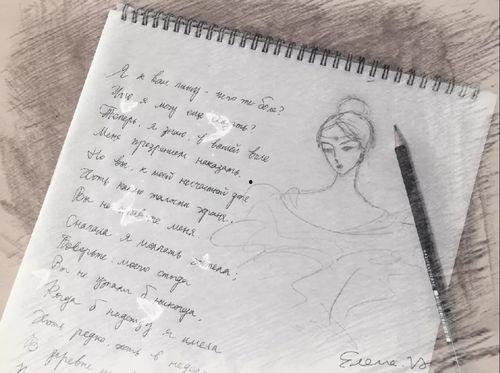 Я к вам пишу - чего же боле?
Что я могу еще
Теперь, я знаю, в вашей воле
Меня презрением наказать.
Но вы, к моей несчастной доле
Хоть каплю жалости храня,
Вы не меня.
Сначала я молчать
Поверьте: моего стыда
Вы не узнали б никогда,
Когда б надежду я имела
Хоть редко, хоть в
В деревне
Елена.